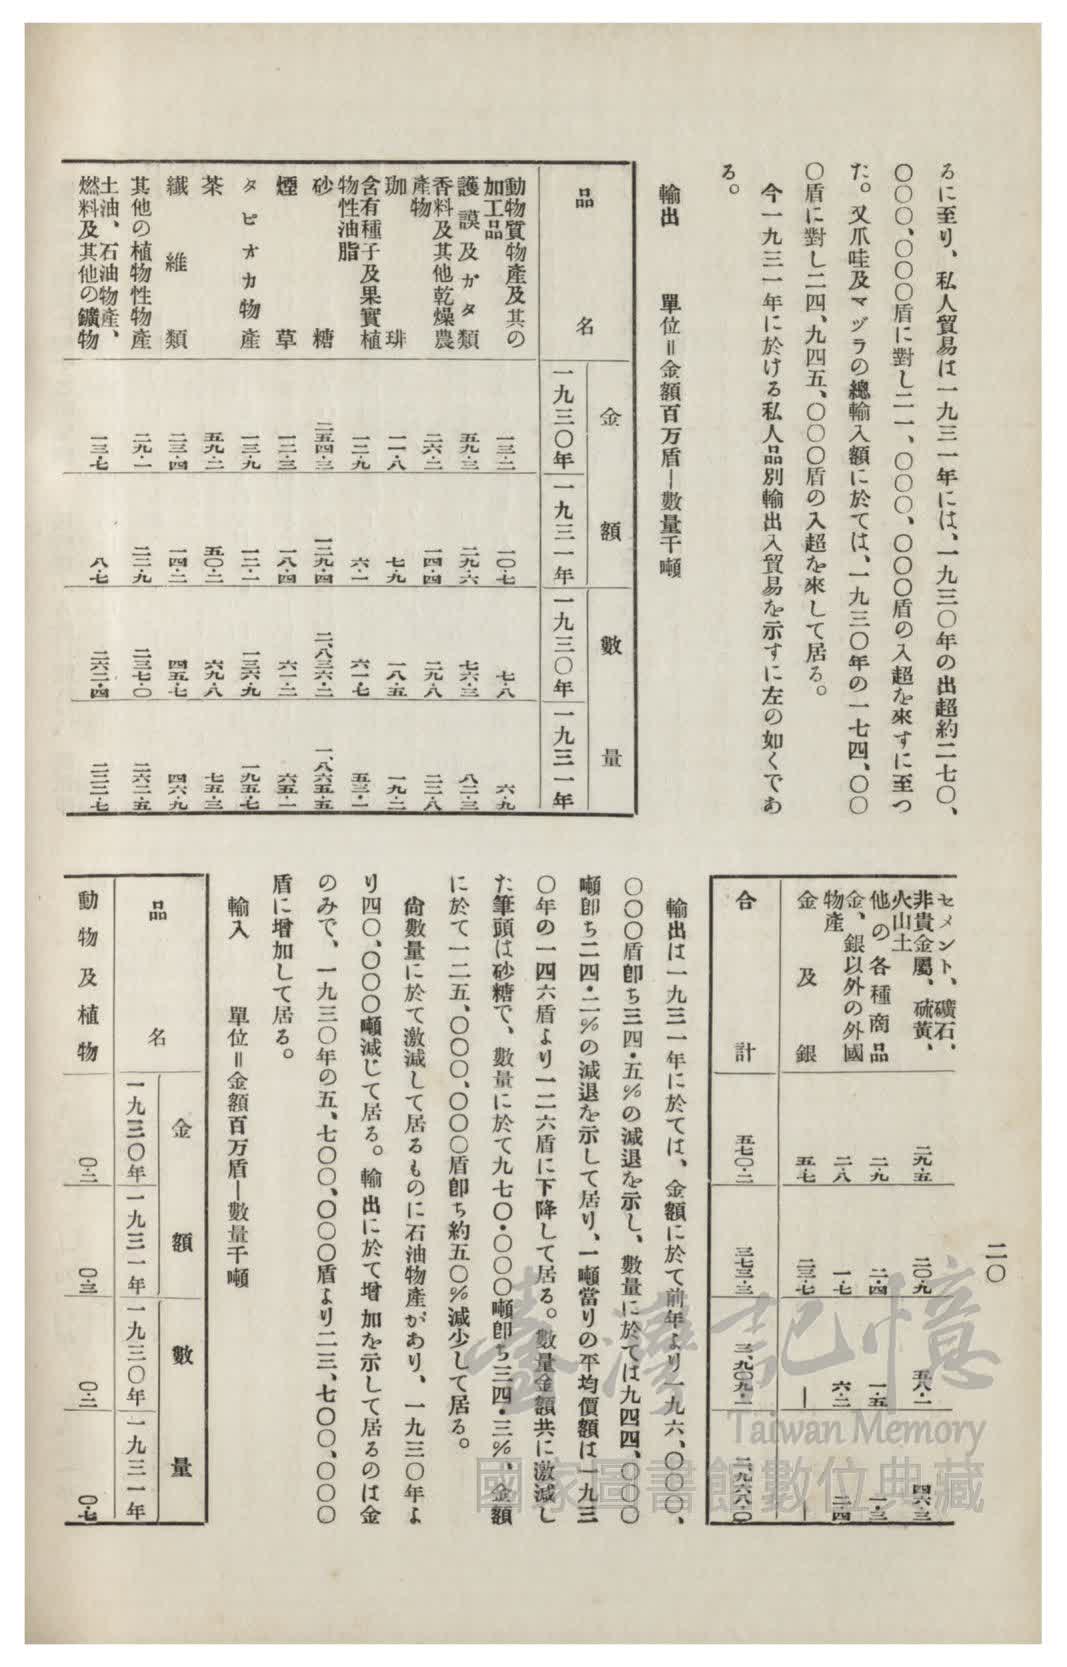 二〇
るに至り、私人貿易は一九三一年には、一九三〇年の出超約二七〇、
〇〇〇、〇〇〇盾に對し二一、〇〇〇、〇〇〇盾の入超を來すに至つ
た。又爪哇及マヅラの總輸入額に於ては、一九三〇年の一七四、〇〇
〇盾に對し二四、九四五、〇〇〇盾の入超を來して居る。
今一九三一年に於ける私人品別輸出入貿易を示すに左の如くであ
る。
輸出 單位=金額百万盾—數量千噸
品名 金額 數量
一九三〇年 一九三一年 一九三〇年 一九三一年
動物質物產及其の加工品 一三・二 一〇・七 七・八 六・九
護謨及ガタ類 五九・三 二九・六 七六・三 八二・三
香料及其他乾燥農產物 二六・二 一四・四 二九・八 二二・八
珈琲 一一・八 七・九 一八・五 一九・二
含有種子及果實植物性油脂 一二・九 六・一 六一・七 五三・一
砂糖 二五四・三 一二九・四 二、八三六・二 一、八六五・五
煙草 一二・三 一八・四 六一・二 六五・一
タピオカ物產 一三・九 一二・一 一三六・九 一九五・七
茶 五九・二 五〇・二 六九・八 七五・三
纖維類 二三・四 一四・二 四五・七 四六・九
其他の植物性物產 二九・一 二二・九 二三七・〇 二六二・五
土油、石油物產、燃料及其他の鑛物 一三・七 八・七 二六二・四 二二二・七
セメント、礦石、非貴金屬、硫黃、火山土 二九・五 二〇・九 五八・一 四六・三
他の各種商品 二・九 二・四 一・五 一・三
金、銀以外の外國物產 二・八 一・七 六・二 三・四
金及銀 五・七 二三・七 — —
合計 五七〇・二 三七三・三 三、九〇九・一 二、九六八・〇
輸出は一九三一年に於ては、金額に於て前年より一九六、〇〇〇、
〇〇〇盾卽ち三四・五%の減退を示し、數量に於ては九四四、〇〇〇
噸卽ち二四・二%の減退を示して居り、一噸當りの平均價額は一九三
〇年の一四六盾より一二六盾に下降して居る。數量金額共に激減し
た筆頭は砂糖で、數量に於て九七〇・〇〇〇噸卽ち三四・三%、金額
に於て一二五、〇〇〇、〇〇〇盾卽ち約五〇%減少して居る。
尙數量に於て激減して居るものに石油物產があり、一九三〇年よ
り四〇、〇〇〇噸減じて居る。輸出に於て增加を示して居るのは金
のみで、一九三〇年の五、七〇〇、〇〇〇盾より二三、七〇〇、〇〇〇
盾に增加して居る。
輸入 單位=金額百万盾—數量千噸
品名 金額 數量
一九三〇年 一九三一年 一九三〇年 一九三一年
動物及植物 〇・二 〇・三 〇・二 〇・七
臺灣記憶
Taiwan Memory
國家圖書館數位典藏